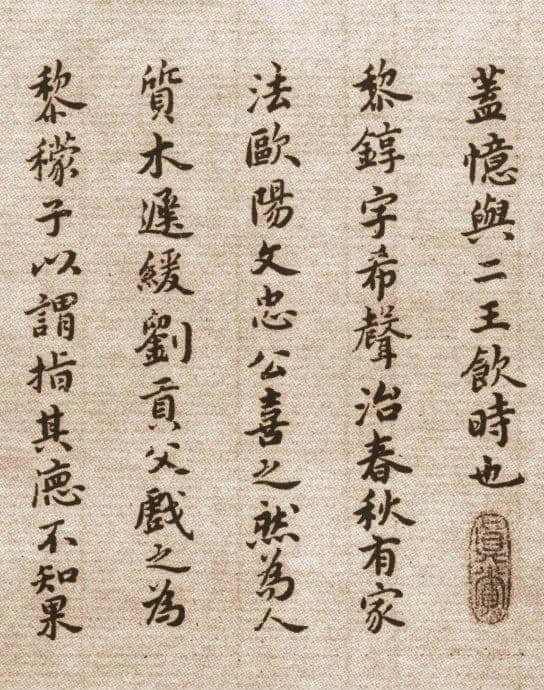 蓋憶與二王飲時也
黎錞字希聲治春秋有家
法歐陽文忠公喜之然為人
質木遲緩劉貢父戲之為
黎檬子以謂指其德不知果